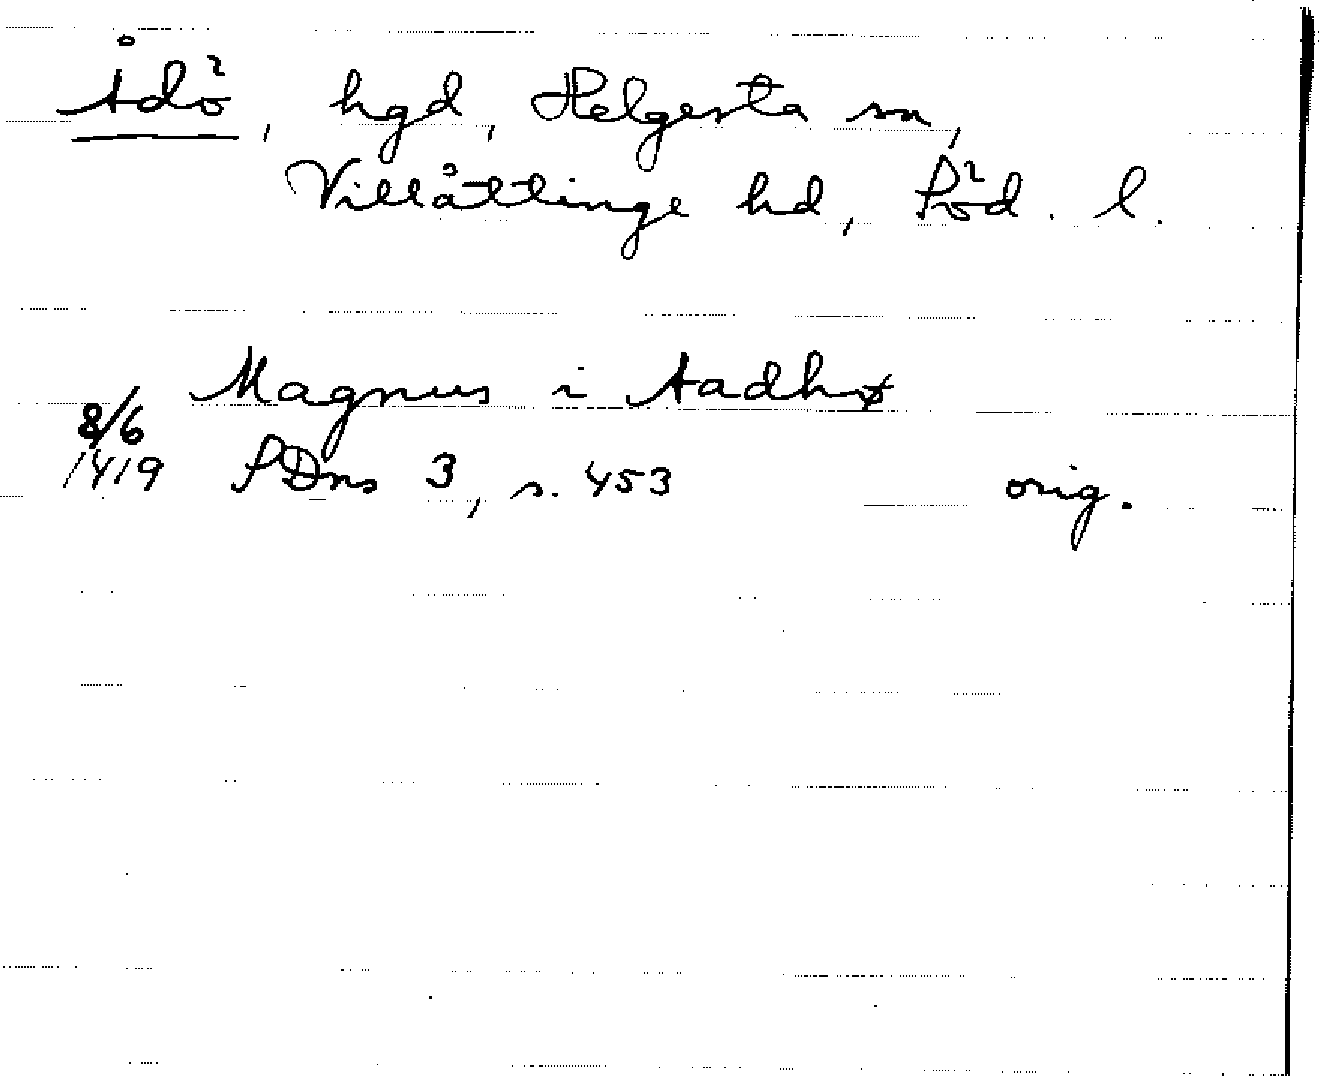 Ådö, hgd, Helgesta sn,
Villåttinge hd, Söd. l.
Magnus i Aadhø
8/6
1419 SDns 3, s. 453 orig.